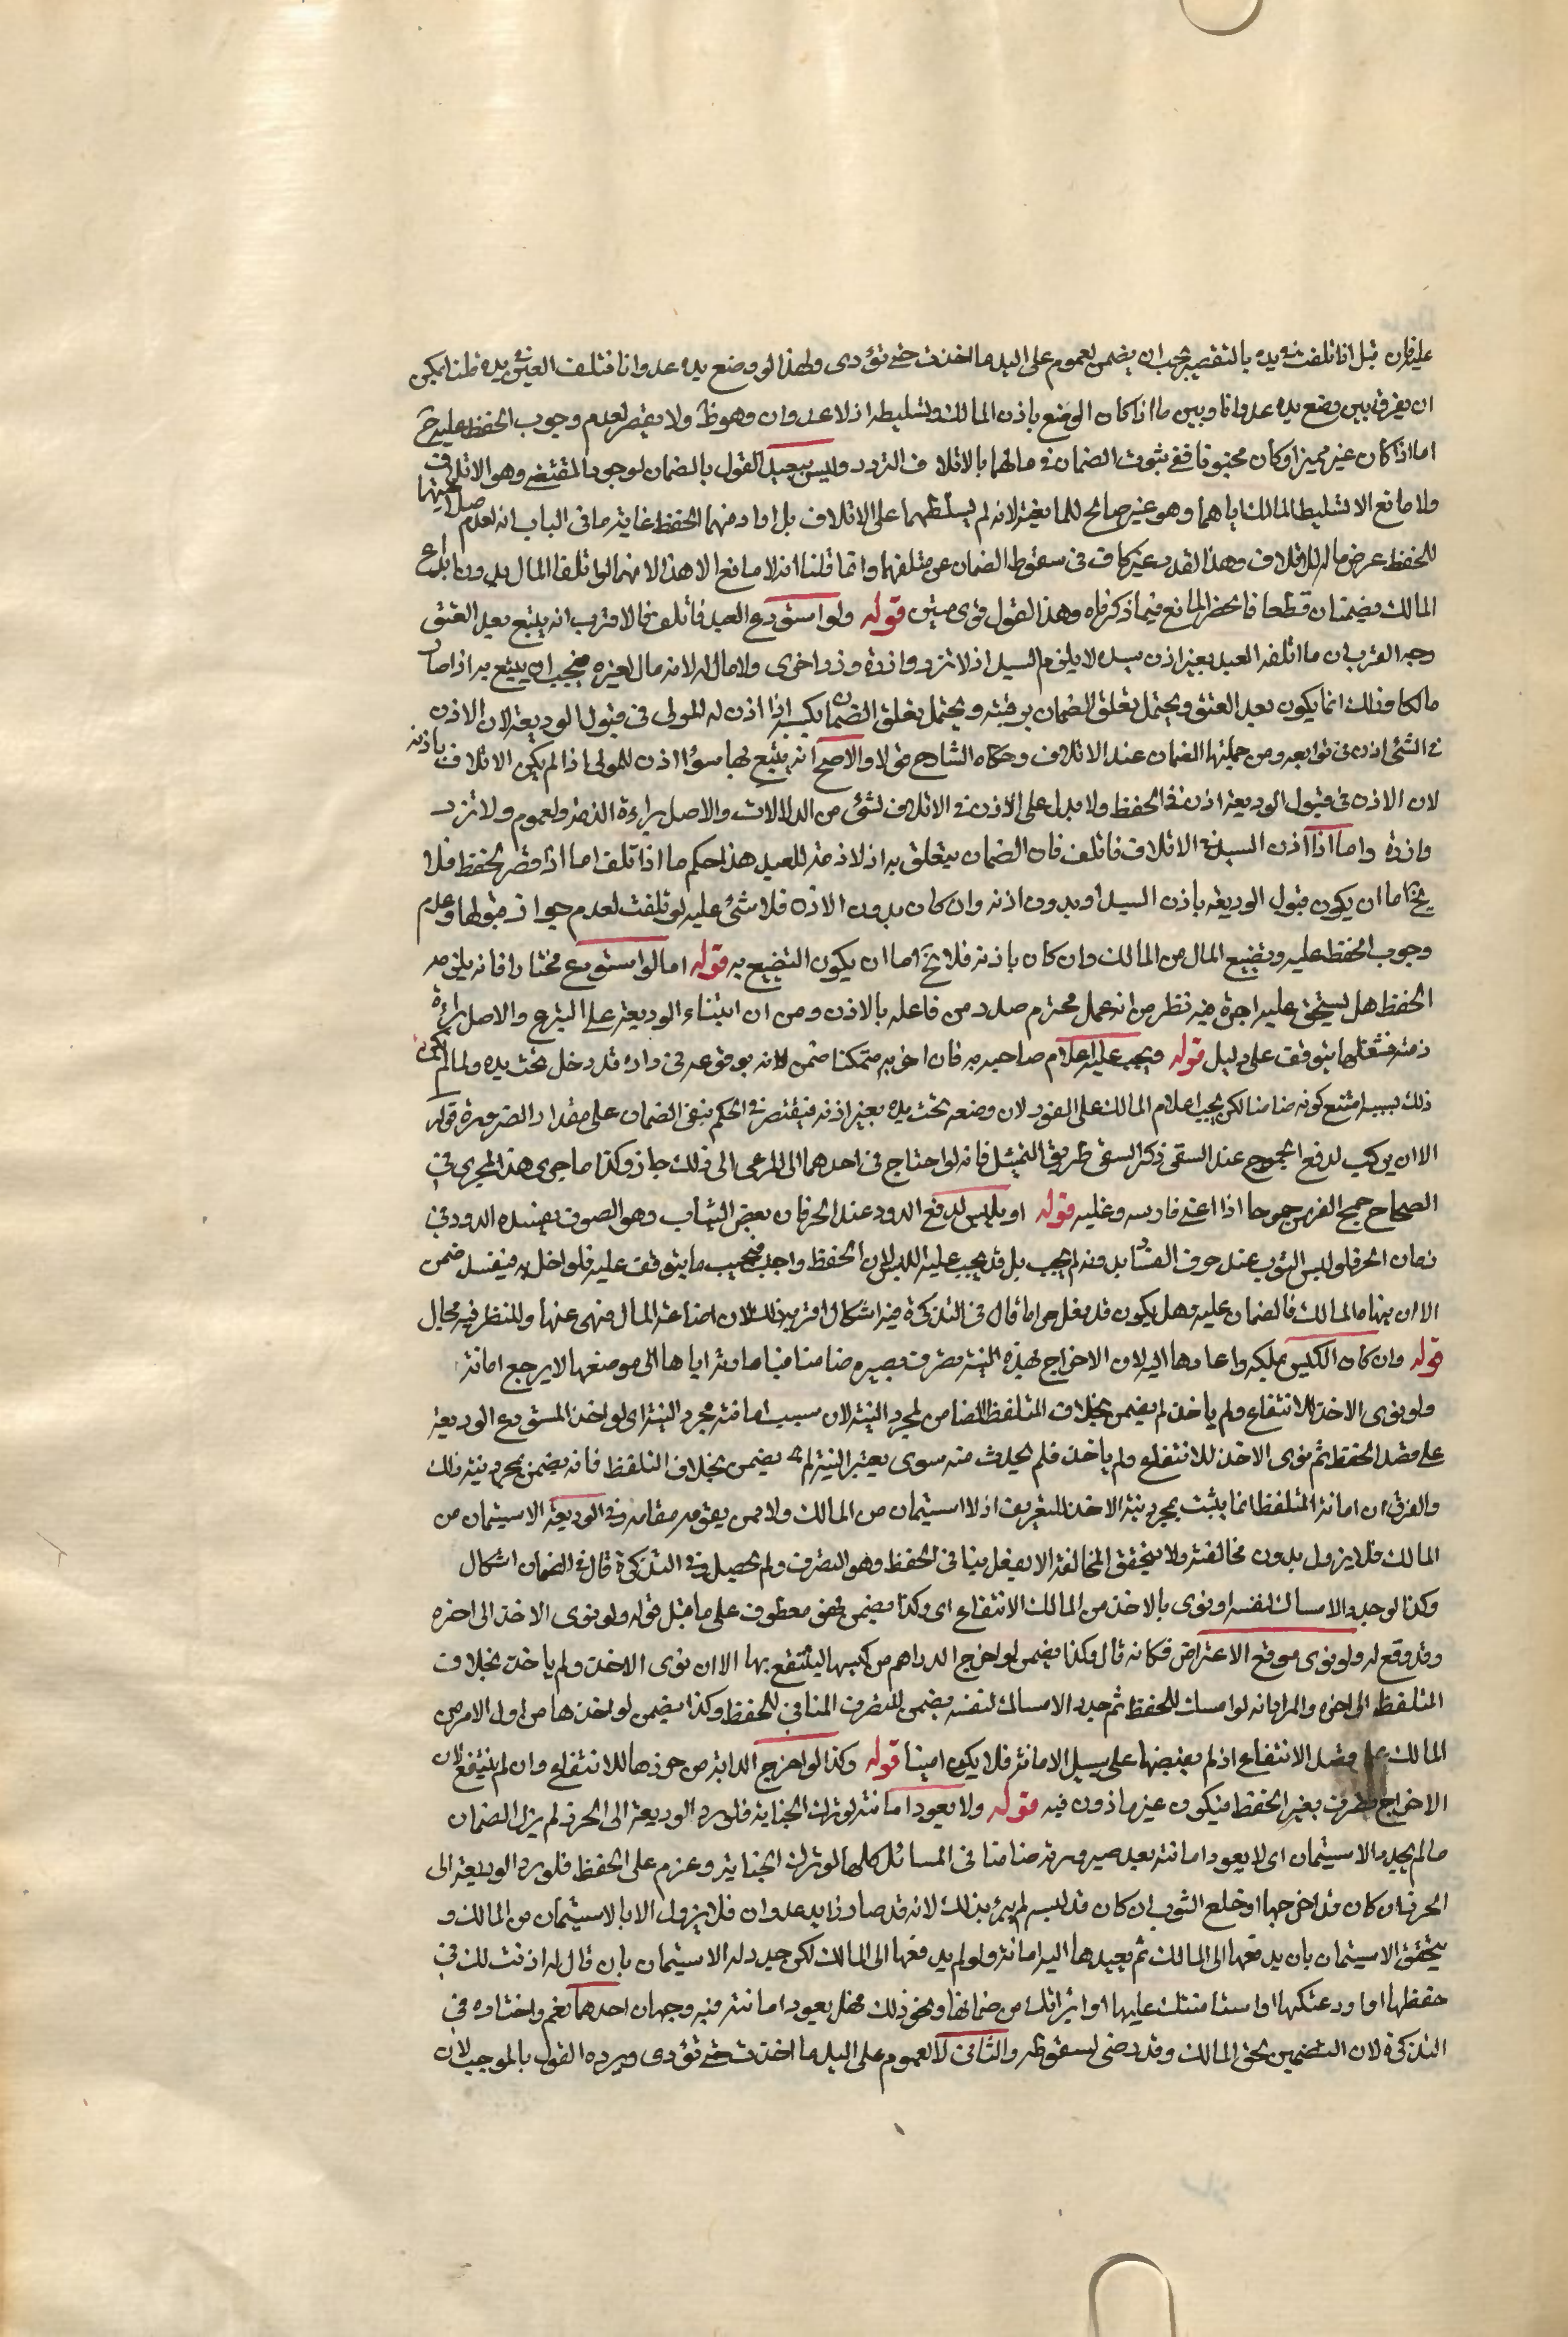 عليه فان قيل اذا تلفت في يده بالتقصير يجب ان يضمن لعموم على اليد ما اخذت حتى تؤدى ولهذا لو وضع يده عدوانا فتلف العين في يده قلنا يمكن
ان يفرق بين وضع يده عدوانا وبين ما اذا كان الوضع باذن المالك وتسليطه اذ لا عدوان وهو ظ ولا تقصير لعدم وجوب الحفظ عليه ح
اما اذا كان غير مميز او كان مجنونا ففى ثبوت الضمان فى مالهما بالاتلاف التردد وليس ببعيد القول بالضمان لوجود المقتضى وهو الاتلاف
ولا مانع الا تسليط المالك اياهما وهو غير صالح للمانعية لانه لم يسلطهما على الاتلاف بل اراد منهما الحفظ غاية ما فى الباب انه لعدم صلاحيتهما
للحفظ عرض ماله للاتلاف وهذا القدر غير كاف فى سقوط الضمان عن متلفهما وانما قلنا انه لا مانع الا هذا لانهما لو اتلفا المال بدون ايداع
المالك يضمنان قطعا فانحصر المانع فيما ذكرناه وهذا القول قوى متين قوله ولو استودع العبد فاتلف فالاقرب انه يتبع بعد العتق
وجه القرب ان ما اتلفه العبد بغير اذن سيده لا يلزم السيد اذ لا تزر وازرة وزر اخرى ولا مال له لانه مال لغيره فيجب ان يتبع به اذا صار
مالكا وذلك انما يكون بعد العتق ويحتمل تعلق الضمان برقبته ويحتمل تعلق الضمان بكسبه اذا اذن له المولى فى قبول الوديعة لان الاذن
فى الشئ اذن فى توابعه ومن جملتها الضمان عند الاتلاف وحكاه الشارح قولا والاصح انه يتبع بها سواء اذن المولى اذا لم يكن الاتلاف باذنه
لان الاذن فى قبول الوديعة اذن فى الحفظ ولا يدل على الاذن فى الاتلاف لشئ من الدلالات والاصل براءة الذمة ولعموم ولا تزر
وازرة واما اذا اذن السيد فى الاتلاف فاتلف فان الضمان يتعلق به اذ لا ذمة للعبد هذا حكم ما اذا تلف اما اذا قصر بحفظ فلا
يخ اما ان يكون قبول الوديعة باذن السيد او بدون اذنه وان كان بدون الاذن فلا شئ عليه لو تلفت لعدم جواز قبولها وعدم
وجوب الحفظ عليه وتضييع المال من المالك وان كان باذنه فلا يخ اما ان يكون التضييع به قوله اما لو استودع مختارا فانه يلزمه
الحفظ هل يستحق عليه اجرة فيه نظر من انه عمل محترم صدر من فاعله بالاذن ومن ان ابتناء الوديعة على التبرع والاصل براءة
ذمته فشغلها يتوقف على دليل قوله ويجب عليه اعلام صاحبه به فان اخر متمكنا ضمن لانه بوقوعه فى داره قد دخل تحت يده ولما لم يكن
ذلك بسببه امتنع كونه ضامنا لكن يجب اعلام المالك على الفور لان وضعه تحت يده بغير اذنه فيقتصر فى الحكم بنفى الضمان على مقدار الضرورة قوله
الا ان يركب لدفع الجموح عند السقى ذكر السقى طريق التمثيل فانه لو احتاج فى احدهما الى المرعى الى ذلك جاز وكذا ما جرى هذا المجرى فى
الصحاح جمح الفرس جموحا اذا اعتز فارسه وغلبه قوله او يلبس لدفع الدود عند الحر فان بعض الثياب وهو الصوف يفسده الدود فى
زمان الحر فلو لبس الثوب عند خوف الفساد بدونه لم يجب بل قد يجب عليه اللبس لان الحفظ واجب فيجب ما يتوقف عليه فلو اخل به فيفسد ضمن
الا ان ينهاه المالك فالضمان عليه وهل يكون قد فعل حراما قال فى التذكرة فيه اشكال اقربه ذلك لان اضاعة المال منهى عنها وللنظر فيه مجال
قوله وان كان الكيس يملكه واعادها اليه لان الاخراج بهذه النية تصرف يصيره ضامنا فباعادته اياها الى موضعها لا يرجع امانة
ولو نوى الاخذ للانتفاع ولم ياخذ لم يضمن بخلاف الملتقط الضامن لمجرد النية لان سبب امانته مجرد النية اى لو اخذ المستودع الوديعة
على قصد الحفظ ثم نوى الاخذ للانتفاع ولم ياخذ فلم يحدث منه سوى تغير النية لم يضمن بخلاف الملتقط فانه يضمن بمجرد نيته ذلك
والفرق ان امانة الملتقط انما يثبت بمجرد نية الاخذ للتعريف اذ لا استيمان من المالك ولا ممن يقوم مقامه وفى الوديعة الاستيمان من
المالك فلا يزول بدون مخالفته ولا يتحقق المخالفة الا بفعل ينافى الحفظ وهو التصرف ولم يحصل وفى التذكرة قال فى الضمان اشكال
وكذا لو جدد الامساك لنفسه او نوى بالاخذ من المالك الانتفاع اى وكذا يضمن فهو معطوف على ما قبل قوله ولو نوى الاخذ الى اخره
وقد وقع له ولو نوى موقع الاعتراض فكانه قال وكذا يضمن لو اخرج الدراهم من كيسها لينتفع بها الا ان نوى الاخذ ولم ياخذ بخلاف
الملتقط الى اخره والمراد انه لو امسك للحفظ ثم جدد الامساك لنفسه يضمن للتصرف المنافى للحفظ وكذا يضمن لو اخذها من اول الامر من
المالك على قصد الانتفاع اذ لم يقبضها على سبيل الامانة فلا يكون امينا قوله وكذا لو اخرج الدابة من حرزها للانتفاع وان لم ينتفع لان
الاخراج تصرف بغير الحفظ فيكون غير ماذون فيه قوله ولا يعود امانته لو ترك الخيانة فلو رد الوديعة الى الحرز لم يزل الضمان
ما لم يجدد الاستيمان اى لا يعود امانته بعد صيرورته ضامنا فى المسائل كلها لو ترك الخيانة وعزم على الحفظ فلو رد الوديعة الى
الحرز ان كان قد اخرجها او خلع الثوب ان كان قد لبسه لم يبرء بذلك لانه قد صار ذا يد عدوان فلا يزول الا بالاستيمان من المالك و
يتحقق الاستيمان بان يدفعها الى المالك ثم يعيدها اليه امانة ولو لم يدفعها الى المالك لكن جدد له الاستيمان بان قال له اذنت لك فى
حفظها او اودعتكها او استامنتك عليها او ابرأتك من ضمانها ونحو ذلك فهل يعود امانته فيه وجهان احدهما نعم واختاره فى
التذكرة لان التضمين بحق المالك وقد رضى بسقوطه والثانى لا لعموم على اليد ما اخذت حتى تؤدى ويرده القول بالموجب لان